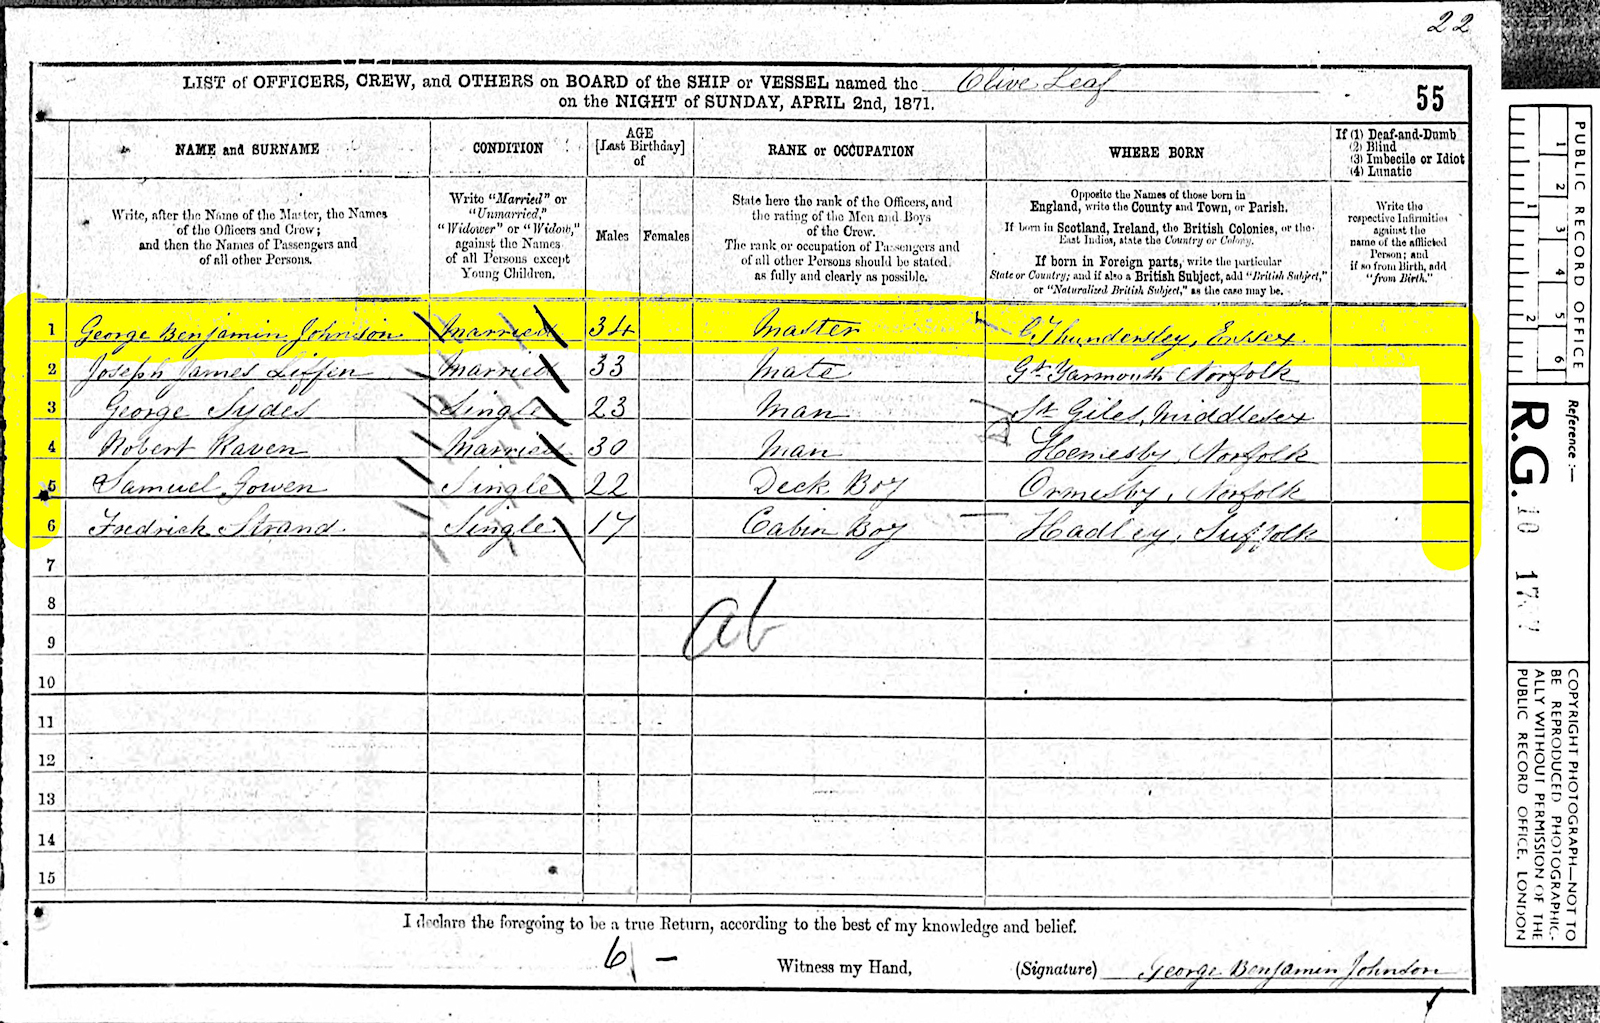 22
LIST of OFFICERS, CREW, and OTHERS on BOARD of the SHIP or VESSEL named the Olive Leaf
on the NIGHT of SUNDAY, APRIL 2nd, 1871.
55
NAME and SURNAME CONDITION AGE [Last Birthday] of RANK or OCCUPATION WHERE BORN If (1) Deaf-and-Dumb (2) Blind (3) Imbecile or Idiot (4) Lunatic
Write, after the Name of the Master, the Names
of the Officers and Crew;
and then the Names of Passengers and
of all other Persons.
Write "Married" or
"Unmarried,"
"Widower" or "Widow,"
against the Names
of all Persons except
Young Children.
Males Females
State here the rank of the Officers, and
the rating of the Men and Boys
of the Crew.
The rank or occupation of Passengers and
of all other Persons should be stated
as fully and clearly as possible.
Opposite the Names of those born in
England, write the County and Town, or Parish.
If born in Scotland, Ireland, the British Colonies, or the
East Indies, state the Country or Colony.
If born in Foreign parts, write the particular
State or Country; and if also a British Subject, add "British Subject,"
or "Naturalized British Subject," as the case may be.
Write the
respective Infirmities
against the
name of the afflicted
Person; and
if so from Birth, add
"from Birth."
1 George Benjamin Johnson Married 34 Master Thundersley, Essex
2 Joseph James Liffen Married 33 Mate Gt Yarmouth Norfolk
3 George Sydes Single 23 Man St Giles, Middlesex
4 Robert Raven Married 30 Man Hemesby, Norfolk
5 Samuel Gowen Single 22 Deck Boy Ormesby, Norfolk
6 Fredrick Strand Single 17 Cabin Boy Hadley, Suffolk
7
8
ab
9
10
11
12
13
14
15
I declare the foregoing to be a true Return, according to the best of my knowledge and belief.
6 –
Witness my Hand, (Signature) George Benjamin Johnson
PUBLIC RECORD OFFICE
1 2 3 4 5 6
1 2
Reference :—
R.G. 10
COPYRIGHT PHOTOGRAPH—NOT TO
BE REPRODUCED PHOTOGRAPHIC-
ALLY WITHOUT PERMISSION OF THE
PUBLIC RECORD OFFICE, LONDON